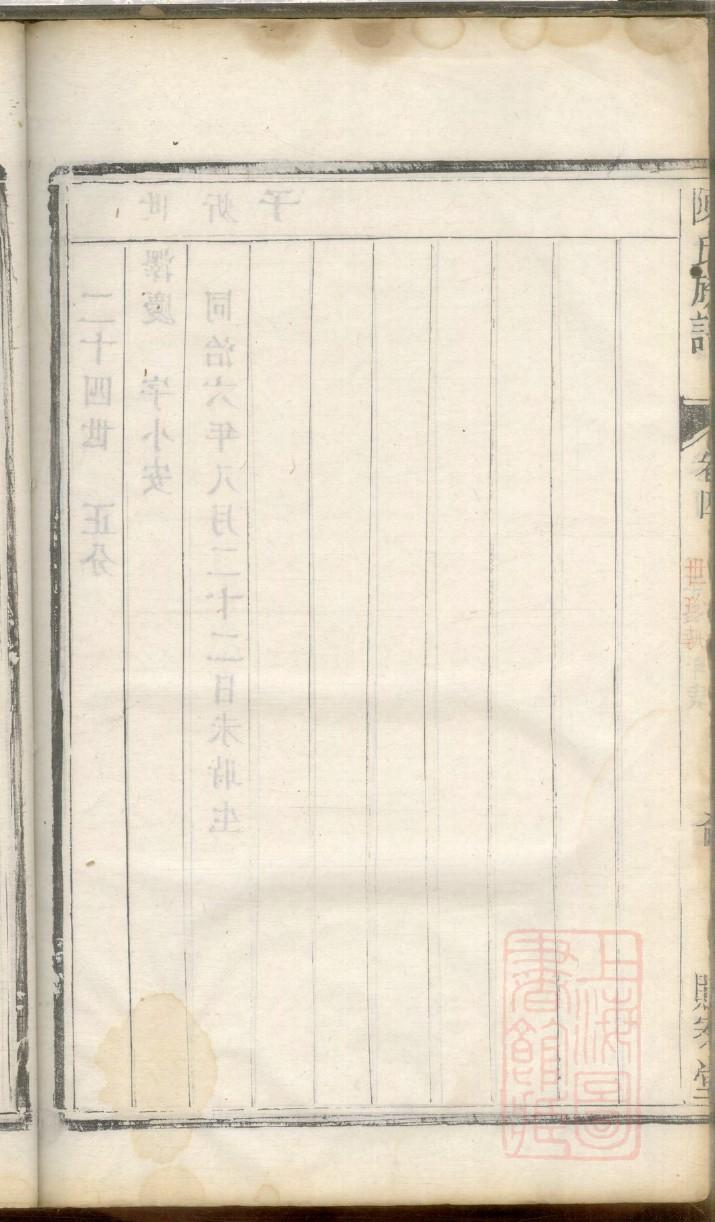 陳氏族譜
卷四
堂
上海圖
書館藏
二十四世 正分
世 澤慶 字小安
同治六年八月二十二日未時生
子